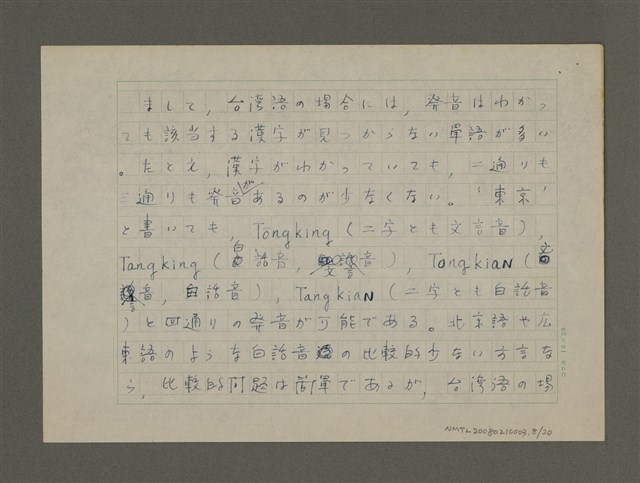 まして，台湾語の場合には，発音はわかっ
ても該当する漢字が見つからない単語が多い
。たとえ，漢字がわかっていても，二通りも
三通りも発音があるのが少なくない。‘東京’
と書いても，Tongking（二字とも文言音），
Tangking（白話音，文言音），Tongkian（文
言音，白話音），Tangkian（二字とも白話音
）と四通りの発音が可能である。北京語や広
東語のような白話音の比較的少ない方言な
ら，比較的問題は簡単であるが，台湾語の場
NMTL20080210003.8/20